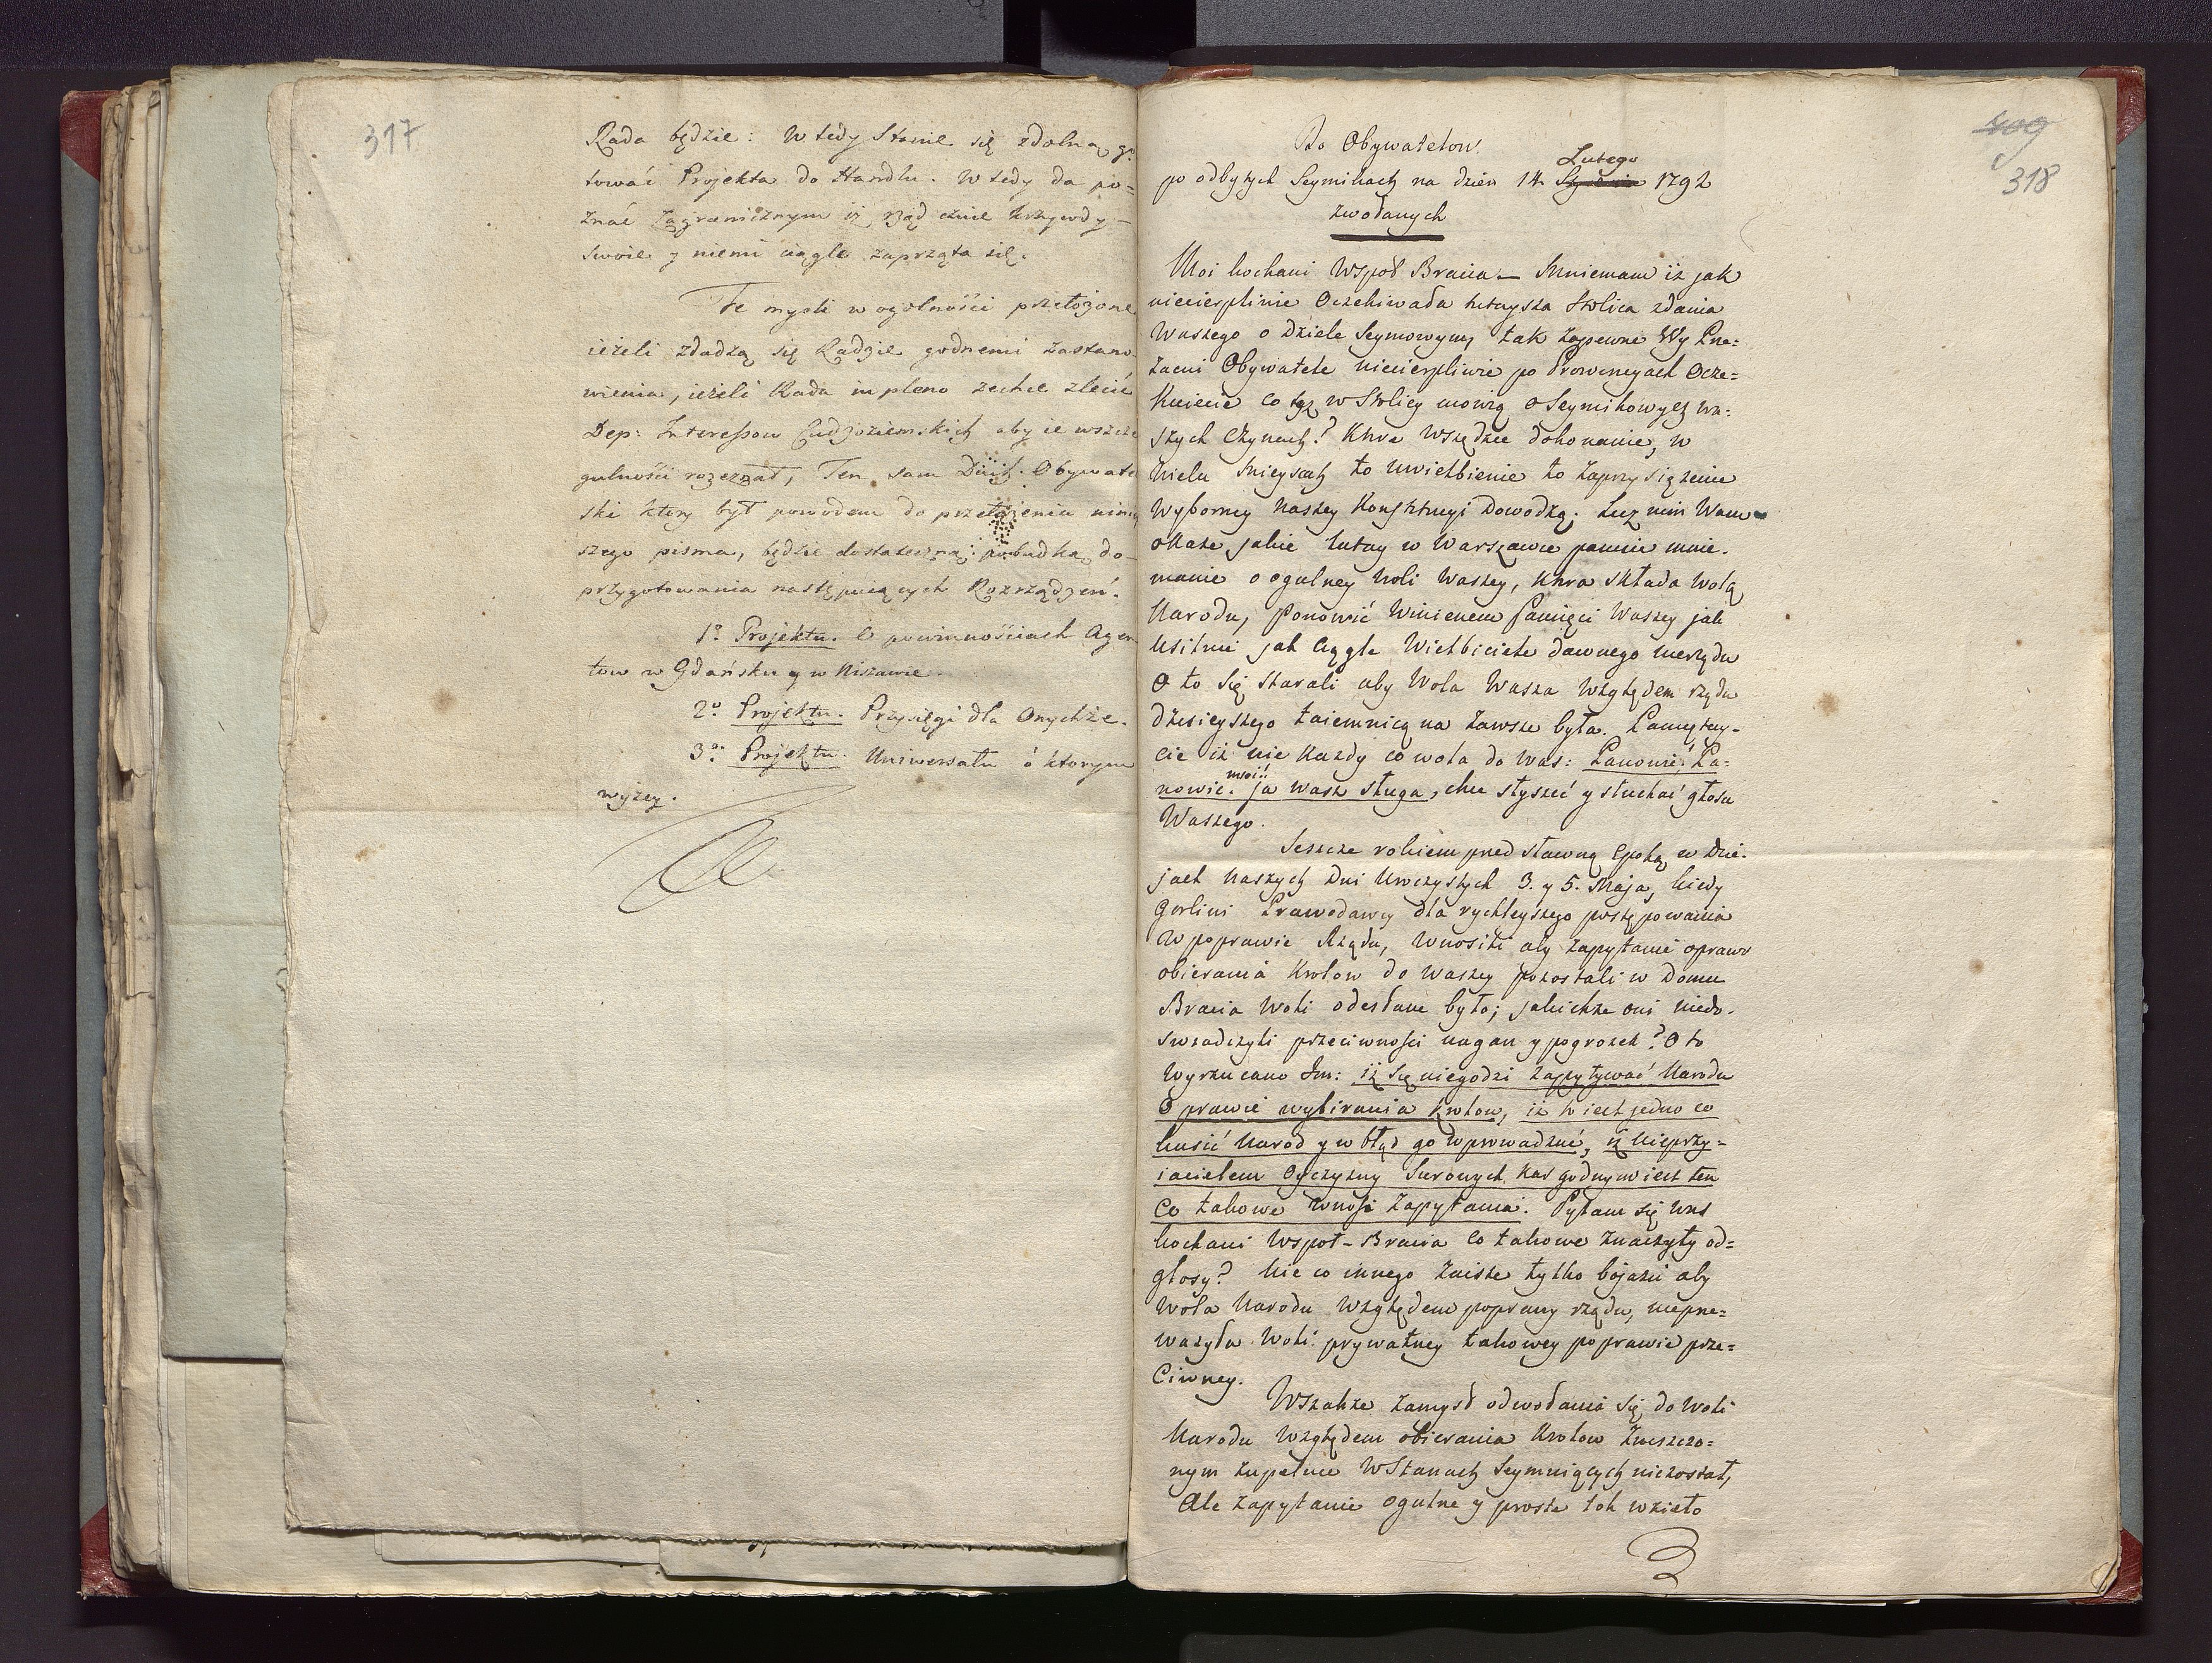 317
Rada będzie: Wtedy Stanie się zdolną go
tować Projekta do Handlu. Wtedy da po=
znać Zagranicznym iż Rząd czuie krzywdy
swoie y niemi ciągle zaprząta się.
Te myśli w ogolności przełożone
ieżeli zdadzą się Radzie godnemi zastano-
wienia, ieżeli Rada in pleno zechce zlecić
Dep: Interessow Cudzoziemskich aby ie wszcze
gulności rozeznał, Ten sam Duch Obywatel
ski ktory był powodem do przełożenia ninie
szego pisma, będzie dostateczną pobudką do
przygotowania następuiących Rozrządzeń.
1o Projektu. O powinnościach Agen
tow w Gdańsku y w Niszawie
2o Projektu. Przysięgi dla Onychże.
3o: Projektu. Uniwersału o ktorym
wyżey.
409
318
Do Obywatelow
Lutego
po odbytych Seymikach na dzień 14 Stycznia 1792
zwołanych
Moi kochani Wspoł Bracia. Mniemam iż jak
niecierpliwie Oczekiwała tuteysza Stolica zdania
Waszego o dziele Seymowym, tak zapewne Wy Prze=
zacni Obywatele niecierpliwie po Prowincyach Ocze=
kuiecie co też w Stolicy mowią o Seymikowych wa=
szych czynach? Ktore wszędzie dokonanie, w
wielu mieyscach to uwielbienie to zaprzysiężenie
wyborney naszey Konstytucyi dowodzą. Lecz nim Wam
okaże jakie tutay w Warszawie panuie mnie-
manie o ogulney woli Waszey, ktora składa wolą
Narodu, ponowić winienem pamięci Waszey jak
usilnie jak ciągle Wielbiciele dawnego nierządu
o to się starali aby Wola Wasza względem rządu
dzisieyszego taiemnicą na zawsze była. Pamiętay-
cie iż nie każdy co woła do was: Panowie! Pa=
moi!
nowie! ja wasz sługa, chce słyszeć y słuchać głosu
Waszego.
Jeszcze rokiem przed sławną Epoką w dzie-
jach naszych Dni Uroczystych 3. y 5. Maja, kiedy
Gorliwi Prawodawcy dla rychleyszego postępowania
w poprawie Rządu, wnosili aby zapytanie o prawo
obierania Krolow do waszey pozostali w Domu
Bracia woli odesłane było; jakichże oni niedo-
swiadczyli przeciwności nagan y pogrozek? Oto
wyrzucano Im: iż się niegodzi zapytywać Narodu
O prawie wybierania krolow, iż to iest jedno co
kusić Narod y w błąd go wprowadzać, iż nieprzy=
iacielem Oyczyzny surowych kar godnym iest ten
co takowe wnosi zapytania. Pytam się was
kochani Wspoł-Bracia co takowe znaczyły od=
głosy? Nic co innego zaiste tylko bojaźń aby
wola Narodu względem poprawy rządu, nieprze=
ważyła woli prywatney takowey poprawie prze=
ciwney.
Wszakże zamysł odwołania się do woli
Narodu względem obierania Krolow zniszczo=
nym zupełnie w Stanach Seymuiących niezostał,
Ale zapytanie ogulne y proste tok wzieło